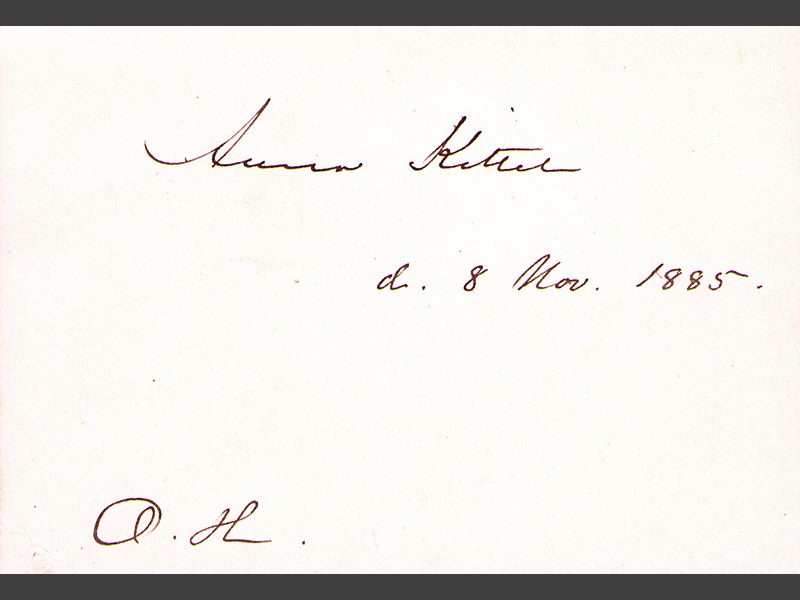 Anna Kittel
d. 8 Nov. 1885.
O. H.